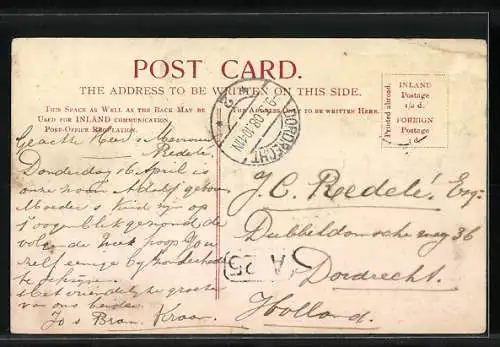 POST CARD.
THE ADDRESS TO BE WRITTEN ON THIS SIDE.
This Space as Well as the Back May be
Used for INLAND communication
Post-Office Regulation.
The Address Only to be Written Here.
INLAND
Postage
½ d.
FOREIGN
Postage
1 d.
Printed abroad.
DORDRECHT
Geachte Heer &
Donderdag 16 April is
onze zoon Adolf geboren
Moeder & Kind zijn op 't
oogenblik gezond de
volgende week hoop Jou
zelf eenige bijzonderheden
te schrijven.
Met vriendelijke groeten
van ons beide
Jo & Kroon
J. C. Redelé. Esq.
Dubbeldamscheweg 36
Dordrecht.
Holland.
A 25